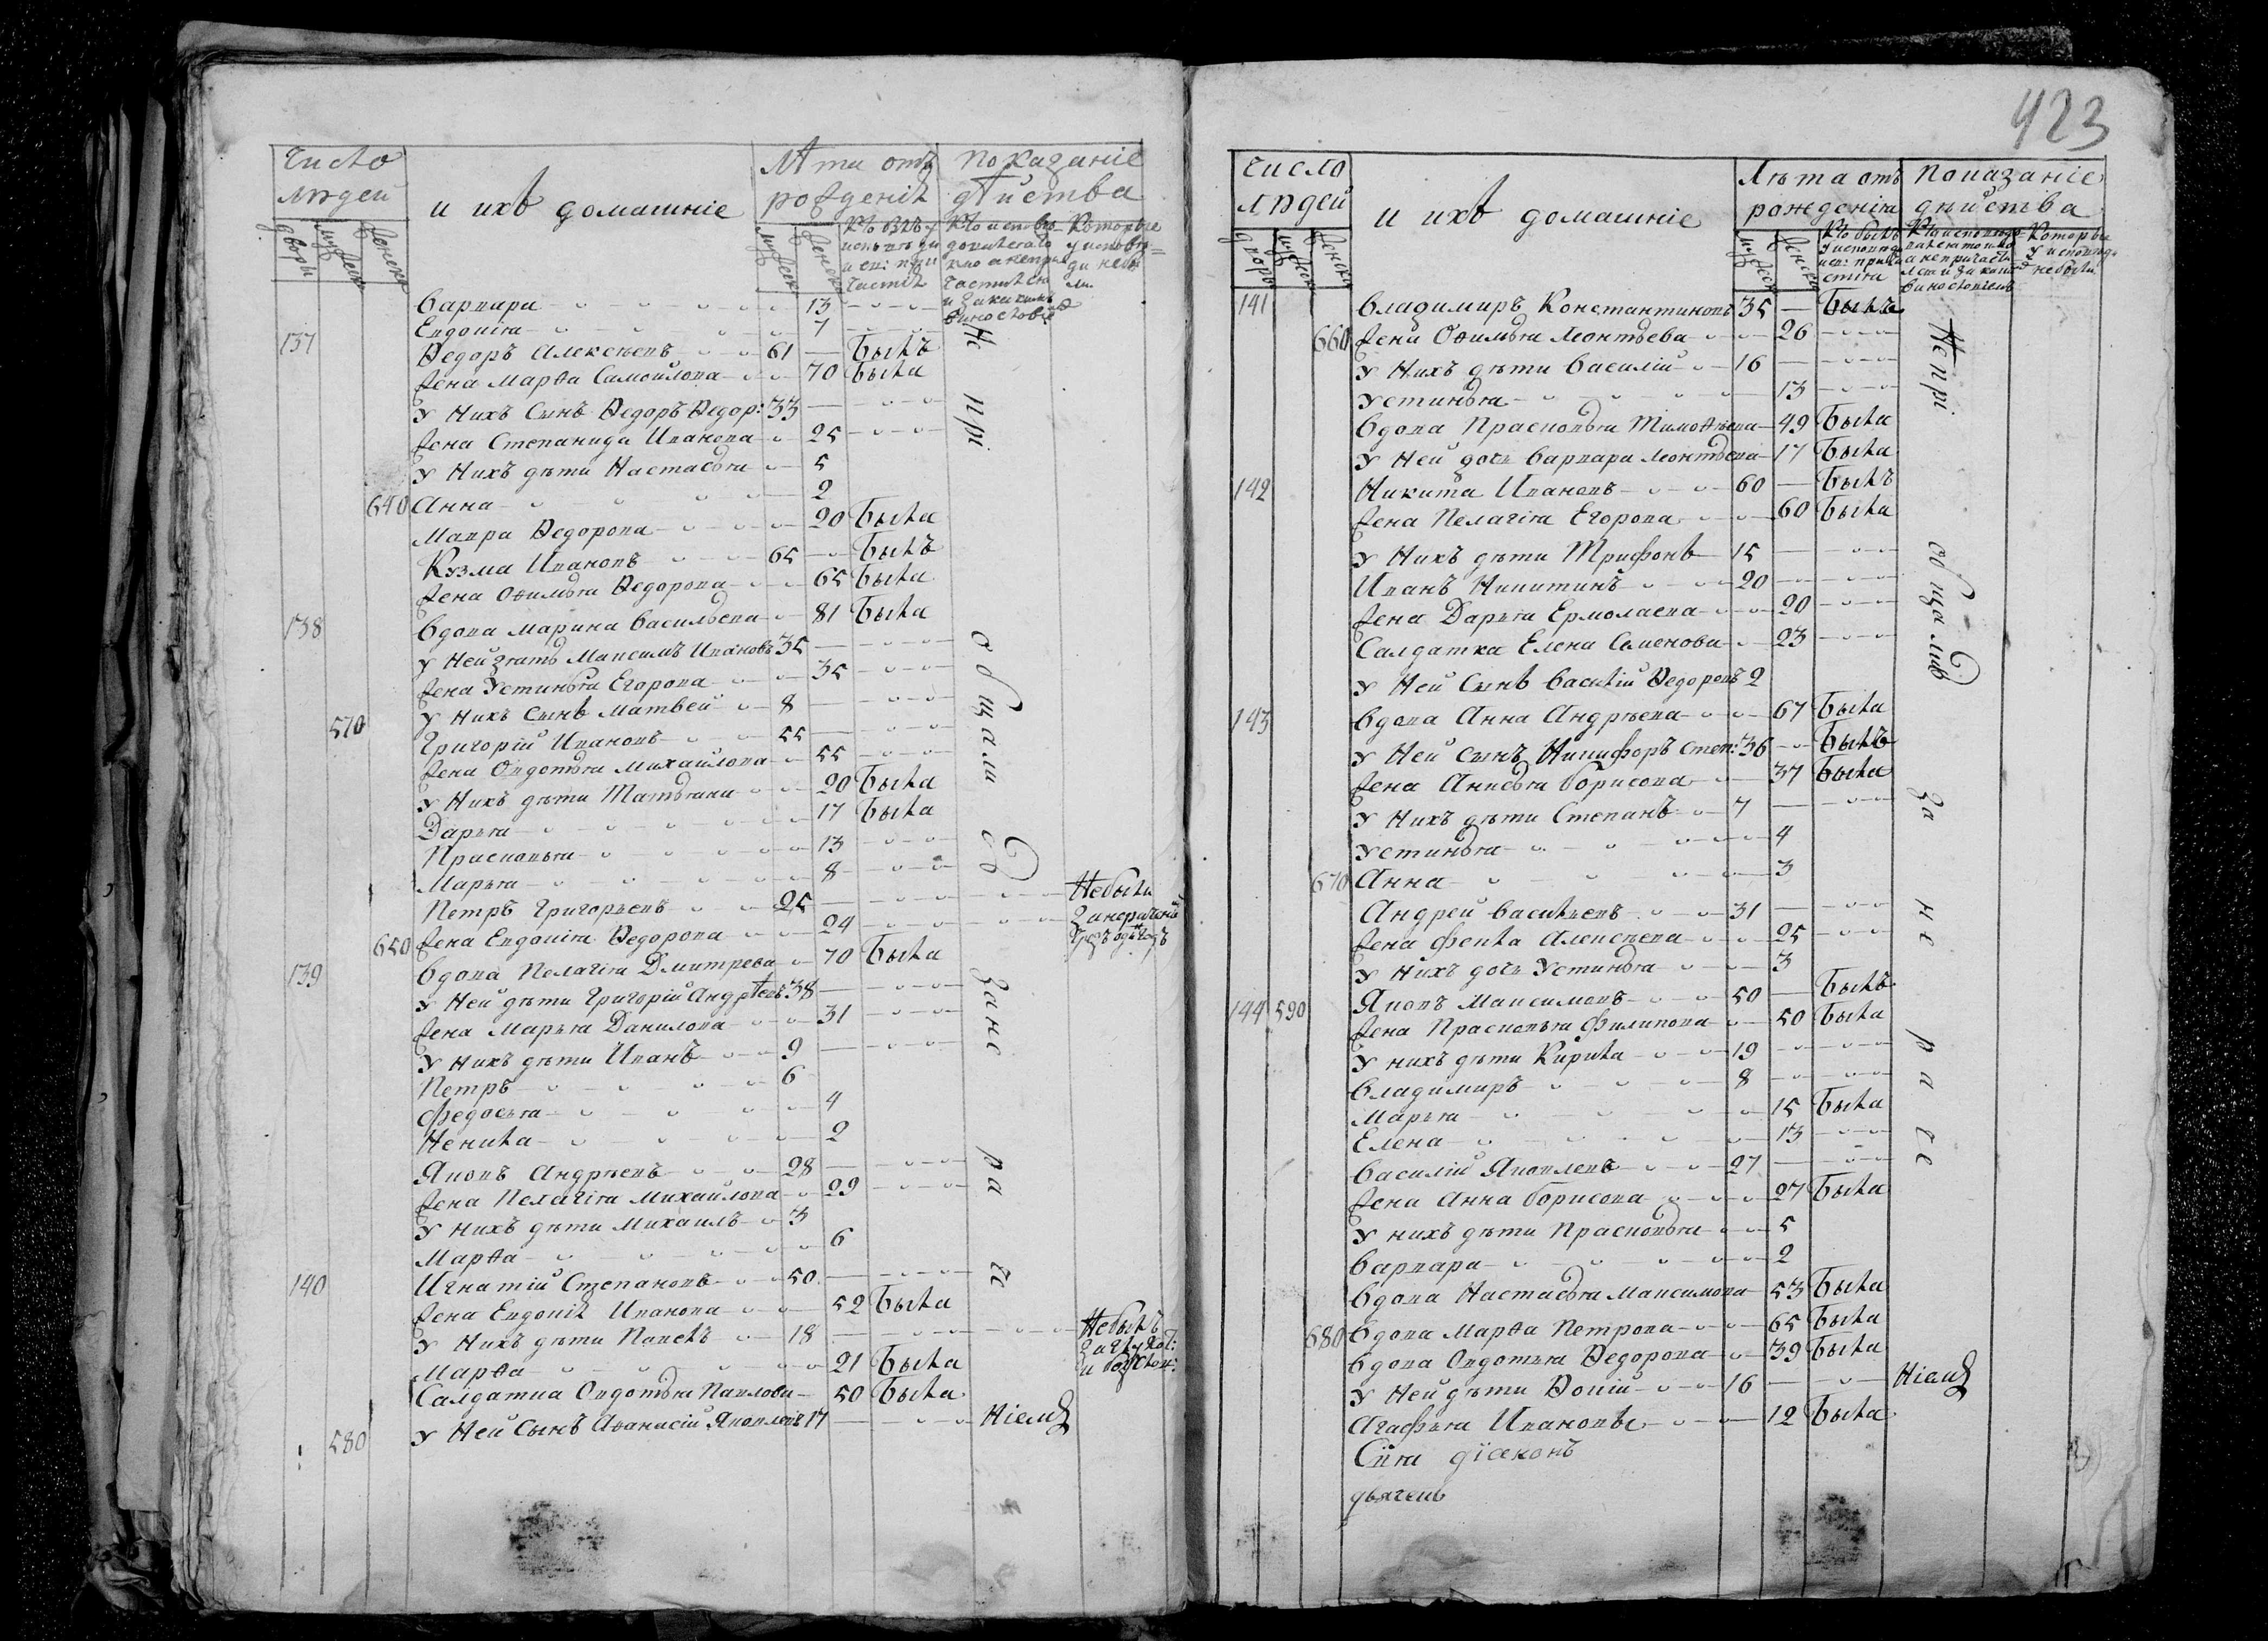 число людей
и ихъ домашніе
лѣта отъ рожденія
показаніе дѣйства
дворы
мужеск
женска
Варвара 13
Евдокия 7
137 Ѳедоръ Алексѣевъ 61 былъ
Жена Марѳа Самойлова 70 была
У нихъ сынъ Ѳедоръ Ѳедор: 33
Жена Степанида Иванова 25
У нихъ дѣти Настасья 5
640 Анна 2
Мавра Ѳедорова 20 была
Кузма Ивановъ 65 былъ
Жена Оѳимья Ѳедорова 65 была
138 Вдова Марина Васильева 81 была
У ней зять Максимъ Ивановъ 35
Жена Устинья Егорова 35
У нихъ сынъ Матвей 8
570 Григорій Ивановъ 55
Жена Овдотья Михайлова 55
У нихъ дѣти Татьяна 20 была
Дарья 17 была
Прасковья 13
Марья 8
Петръ Григорьевъ 25 небыли
650 Жена Евдокия Ѳедорова 24
139 Вдова Пелагія Дмитрева 70 была
У ней дѣти Григорій Андрѣевъ 38
Жена Марья Данилова 31
У нихъ дѣти Иванъ 9
Петръ 6
Федосья 4
Ненила 2
Яковъ Андрѣевъ 28
Жена Пелагія Михайлова 29
У нихъ дѣти Михаилъ 3
Марѳа 6
140 Игнатій Степановъ 50
Жена Евдокия Иванова 52 была
У нихъ дѣти Павелъ 18 небылъ
Марѳа 21 была
Салдатка Овдотья Павлова 50 была
580 У ней сынъ Аѳанасій Яковлевъ 17
не прі общались за не ра
423
число людей
и ихъ домашніе
лѣта отъ рожденія
показаніе дѣйства
дворы
мужеск
женска
141 Владимиръ Константиновъ 35 былъ
660 Жена Оѳимья Леонтьева 26
У нихъ дѣти Василій 16
Устинья 13
Вдова Прасковья Тимоѳѣева 49 была
У ней дочь Варвара Леонтьева 17 была
142 Никита Ивановъ 60 былъ
Жена Пелагія Егорова 60 была
У нихъ дѣти Трифонъ 15
Иванъ Никитинъ 20
Жена Дарья Ермолаева 20
Салдатка Елена Семенова 23
У ней сынъ Василій Ѳедоровъ 2
143 Вдова Анна Андрѣева 67 была
У ней сынъ Никифоръ Степ: 36 былъ
Жена Анисья Борисова 37 была
У нихъ дѣти Степанъ 7
Устинья 4
670 Анна 3
Андрей Васильевъ 31
Жена Фекла Алексѣева 25
У нихъ дочь Устинья 3
144 590 Яковъ Максимовъ 50 былъ
Жена Прасковья Филипова 50 была
У нихъ дѣти Кирила 19
Владимиръ 8
Марья 15 была
Елена 13
Василій Яковлевъ 27
Жена Анна Борисова 27 была
У нихъ дѣти Прасковья 5
Варвара 2
Вдова Настасья Максимова 53 была
680 Вдова Марѳа Петрова 65 была
Вдова Овдотья Ѳедорова 39 была
У ней дѣти Ѳокій 16
Агафья Ивановы 12 была
Сия діаконъ
дьячекъ
не прі общались за не ра се